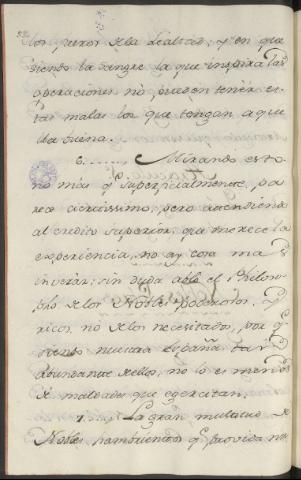 los puros de la Lealtad; y en que
siendo la sangre la que inspira las
operaciones no pueden tener es-
tas malas los que tengan aque
lla buena.
6. Mirando esto
no más q.e superficialmente, pa
rece ciertissimo; pero atendiendo
al credito superior que merece la
experiencia, no ay cosa mas
incierta: sin duda abló el Philoso-
pho de los Nobles poderosos, y
ricos, no de los necesitados, por q.e
siendo nuestra España tan
abundante dellos, no lo es menos
de maldades que egercitan.
7. La gran multitud de
Nobles hambrientos q.e